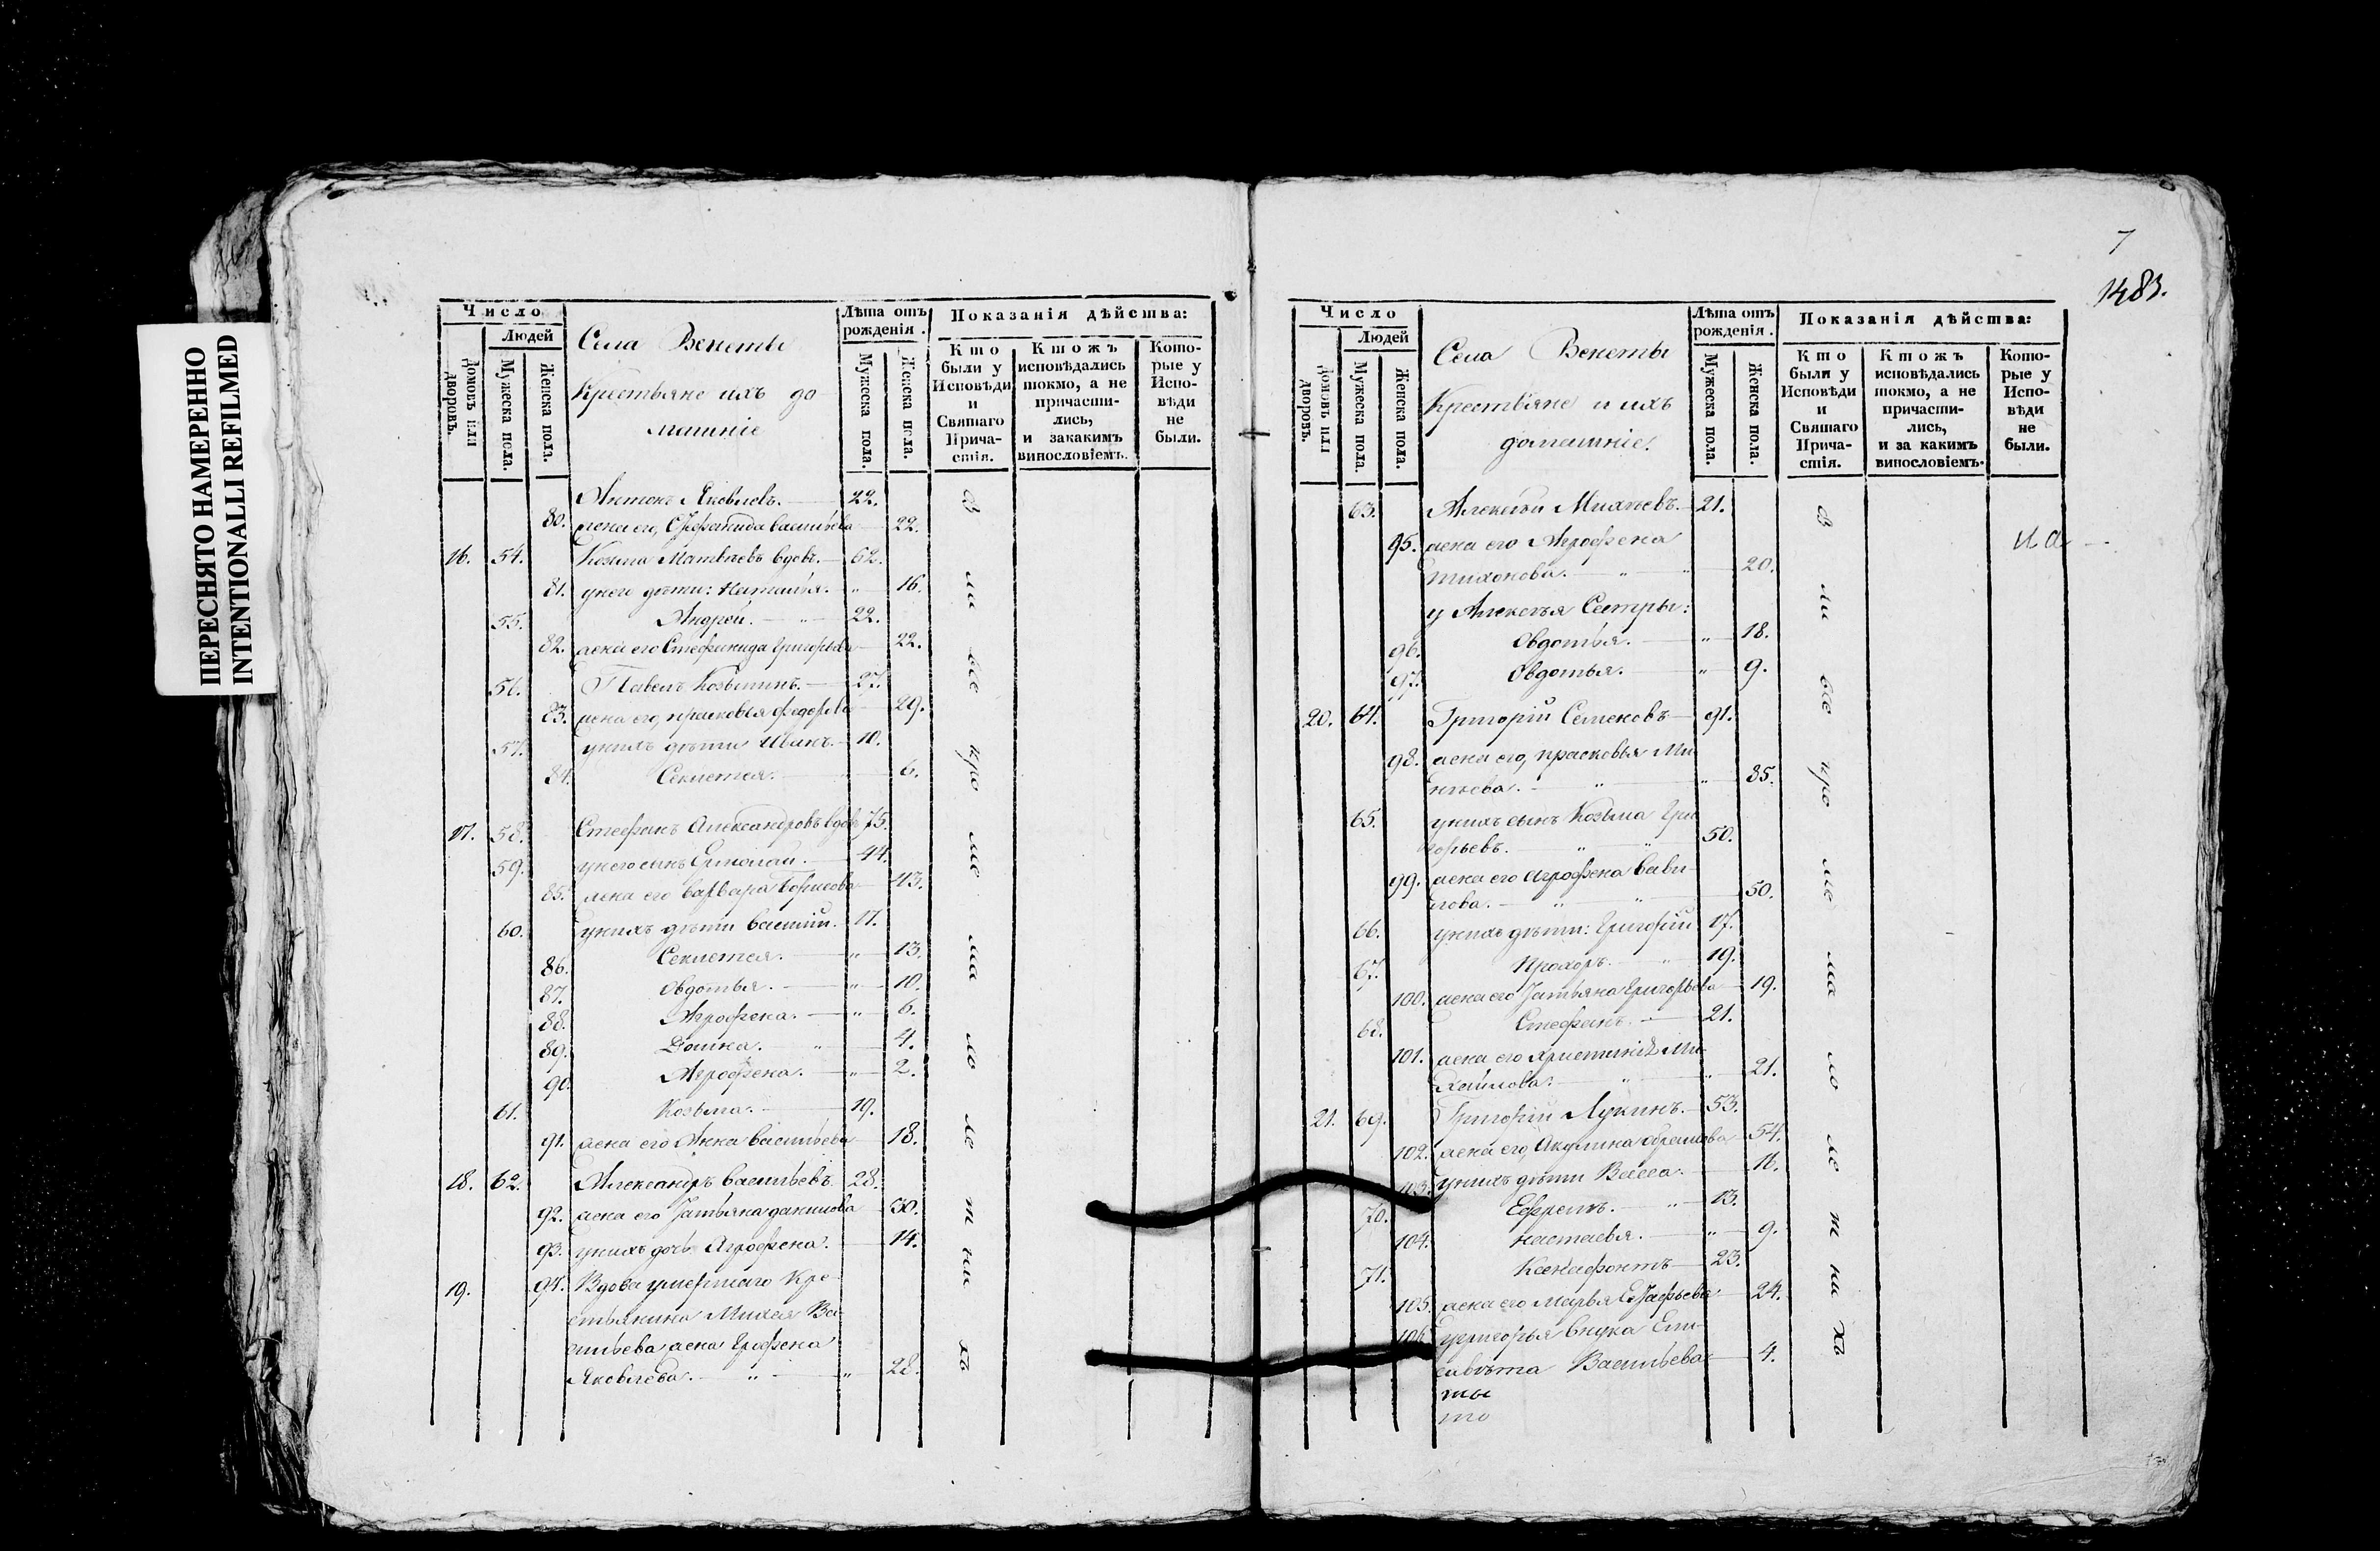 ПЕРЕСНЯТО НАМЕРЕННО
INTENTIONALLI REFILMED
Число
Людей
Домовъ или дворовъ.
Мужеска пола.
Женска пола.
Села Венеты
Крестьяне ихъ до
машніе
Лѣта отъ рожденія.
Мужеска пола.
Женска пола.
Показанія дѣйства:
Кто были у Исповѣди и Святаго Прича-стія.
Ктожъ исповѣдались токмо, а не причасти-лись, и закакимъ винословіемъ.
Кото-рые у Испо-вѣди не были.
Антонъ Яковлевъ. 22.
80. жена его, Васильева 22.
16. 54. Козьма Матвѣевъ вдовъ. 62.
81. у него дѣти: Наталья. 16.
55. Андрей. 22.
82. жена его Стефанида Григорьева 22.
56. Павелъ Козьминъ. 27.
83. жена его, прасковья федорова 29.
57. у нихъ дѣти Иванъ. 10.
84. Секлетея. 6.
17. 58. Стефанъ Александровъ вдовъ 75.
59. у него сынъ Ермолай. 44.
85. жена его варвара борисова 43.
60. у нихъ дѣти василій. 17.
86. Секлетея. 13.
87. Овдотья. 10.
88. Агрофена. 6.
89. Домна. 4.
90. Агрофена. 2.
61. Козьма. 19.
91. жена его Анна васильева 18.
18. 62. Александръ васильевъ 28.
92. жена его Татьяна данилова 30.
93. у нихъ дочь Агрофена. 14.
19. 94. Вдова умершаго Кре-
стьянина Михея Ва-
сильева жена
Яковлева. 28.
7
1483.
Число
Людей
Домовъ или дворовъ.
Мужеска пола.
Женска пола.
Села Венеты
Крестьяне и ихъ
домашніе.
Лѣта отъ рожденія.
Мужеска пола.
Женска пола.
Показанія дѣйства:
Кто были у Исповѣди и Святаго Прича-стія.
Ктожъ исповѣдались токмо, а не причасти-лись, и за какимъ винословіемъ.
Кото-рые у Испо-вѣди не были.
63. Алексѣй Михѣевъ. 21.
95. жена его Агрофена
тихонова. 20.
у Алексѣя Сестры:
96. Овдотья. 18.
97. Овдотья. 9.
20. 64. Григорій Семеновъ 91.
98. жена его, прасковья Ми
нѣева. 85.
65. у нихъ сынъ Козьма Гри
горьевъ. 50.
99. жена его агрофена вави
лова. 50.
66. у нихъ дѣти: Григорій 17.
67. Прохоръ. 19.
100. жена его Татьяна Григорьева 19.
68. Стефанъ. 21.
101. жена его Ми-
хайлова. 21.
21. 69. Григорій Лукинъ. 53.
102. жена его, Акулина 54.
103. у нихъ дѣти Васса. 16.
70. Ефремъ. 13.
104. настасья. 9.
71. Ксенофонтъ 23.
105. жена его Марья 24.
106. у григорья внука Ели-
савѣта Васильева 4.